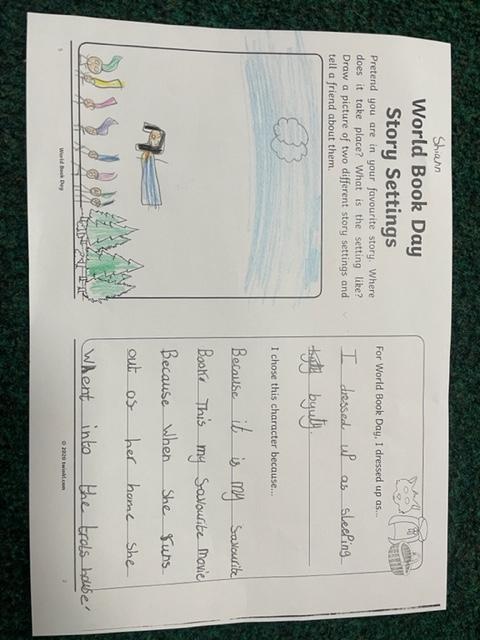 Shiann
World Book Day
Story Settings
Pretend you are in your favourite story. Where
does it take place? What is the setting like?
Draw a picture of two different story settings and
tell a friend about them.
5
World Book Day
For World Book Day, I dressed up as...
I dressed up as sleeping
byuity.
I chose this character because...
Because it is my favourite
Book. This my favourite movie
Because when she runs
out of her home she
Whent into the trols house.
© 2020 twinkl.com